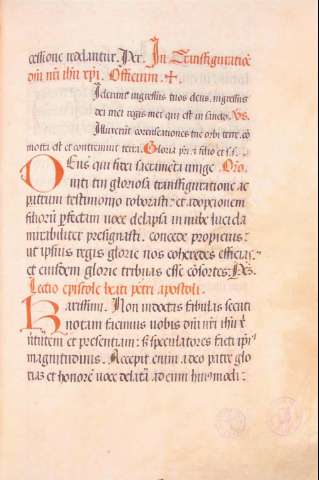 cessione tradantur. Per. In Transfiguratiōe
dñi nr̄i ihū xp̄i. Officium. +.
Viderunt ingressus tuos deus. ingressus
dei mei regis mei qui est in sancto. Vs.
Illuxerūt coruscationes tue orbi terre. cō
mota est et contremuit terra. Gloria pr̄i et filio et s̄. s.
DEus qui fidei sacramēta unige Orō.
niti tui gloriosa transfiguratione ac
patrum testimonio roborasti: et adopcionem
filiorū p̄fectam uoce delapsa in nube lucida
mirabiliter presignasti. concede propicius:
ut ipsius regis glorie nos coheredes efficias.
et eiusdem glorie tribuas esse cōsortes: Per.
Lectio epistole beati petri apostoli.
BArissimi. Non indoctas fabulas secuti
notam facimus uobis dñi nr̄i ihū xp̄i
uirtutem et presentiam: s̄ speculatores facti ip̄i9
magnitudinis. Accepit enim a deo patre glo
riaz et honorē uoce delata ad eum huiusmodi: